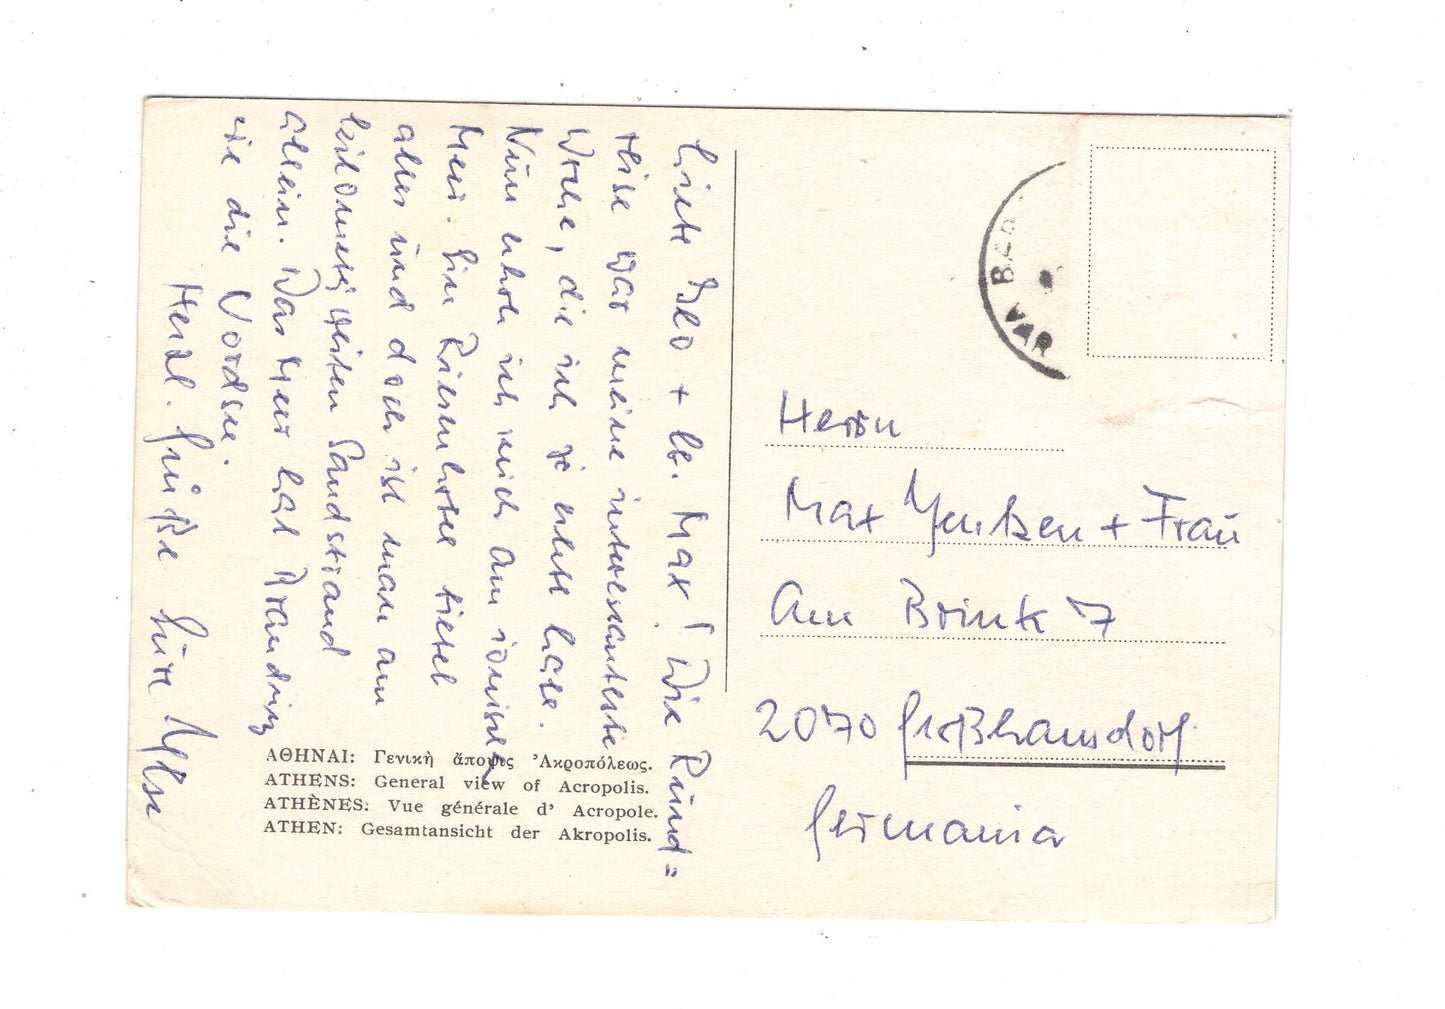 Liebe Leo + lb. Max! Die Rund=
reise war meine interessanteste
Woche, die ich je erlebt habe.
Nun erhole ich mich am ionischen
Meer. Ein Riesenhotel bietet
alles und doch ist man am
kilometerweiten Sandstrand
allein. Das Meer hat Brandung
wie die Nordsee.
Herzl. Grüße Eure Ilse
ΑΘΗΝΑΙ: Γενικὴ ἄποψις Ἀκροπόλεως.
ATHENS: General view of Acropolis.
ATHÈNES: Vue générale d' Acropole.
ATHEN: Gesamtansicht der Akropolis.
Herrn
Max Jentzen + Frau
Am Brink 7
2070 Großhansdorf
Germania